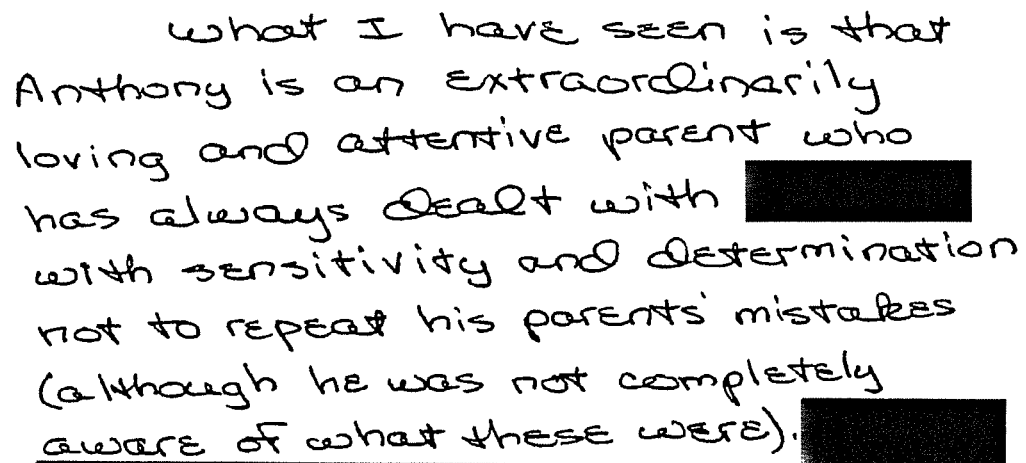 what I have seen is that
Anthony is an extraordinarily
loving and attentive parent who
has always dealt with
with sensitivity and determination
not to repeat his parents' mistakes
(although he was not completely
aware of what these were).